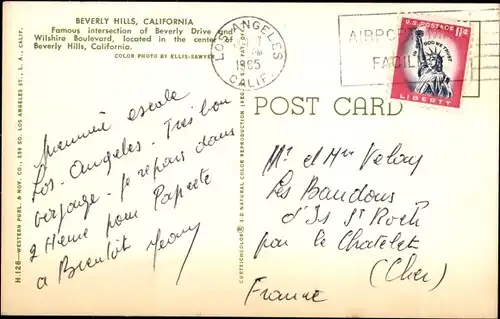 BEVERLY HILLS, CALIFORNIA
Famous intersection of Beverly Drive and
Wilshire Boulevard, located in the center of
Beverly Hills, California.
COLOR PHOTO BY ELLIS-SAWYER
LOS ANGELES
1965
CALIF.
AIRPORT
FACILI
U.S. POSTAGE 11¢
IN GOD WE TRUST
LIBERTY
POST CARD
première escale
Los-Angeles. Très bon
voyage. Je repars dans
2 Heures pour Papeete
a Bientôt
Mr et Mme
Les Baudons
d'Ids St Roch
par le Chatelet
(Cher)
France
H-126—WESTERN PUBL. & NOV. CO., 259 SO. LOS ANGELES ST., L. A., CALIF.
CURTEICHCOLOR® 3-D NATURAL COLOR REPRODUCTION (REG. U.S. PAT. OFF.)